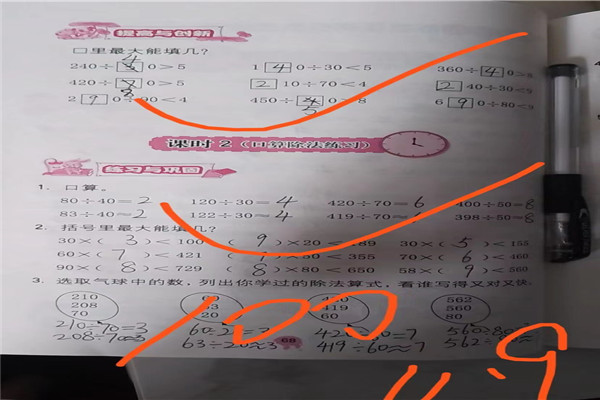 提高与创新
□里最大能填几?
240÷ 0>5 1 4 0÷30<5 360÷ 4 0>8
420÷ 0>5 2 10÷70<4 2 40÷30<9
2 9 0÷90<4 450÷ 0>8 6 9 0÷80<9
课时2(口算除法练习)
练习与巩固
1. 口算。
80÷40=2 120÷30=4 420÷70=6 400÷50=8
83÷40≈2 122÷30≈4 419÷70≈6 398÷50≈8
2. 括号里最大能填几?
30×( 3 )<100 ( 9 )×20<189 30×( 5 )<155
60×( 7 )<421 ( )×50<355 70×( 6 )<460
90×( 8 )<729 ( 8 )×80<650 58×( 9 )<560
3. 选取气球中的数,列出你学过的除法算式,看谁写得又对又快。
210 562
208 419 560
70 20 60 80
210÷70=3 7 560÷80
208÷70≈3 63÷20≈3 419÷60≈7 562÷80
68
100
11.9